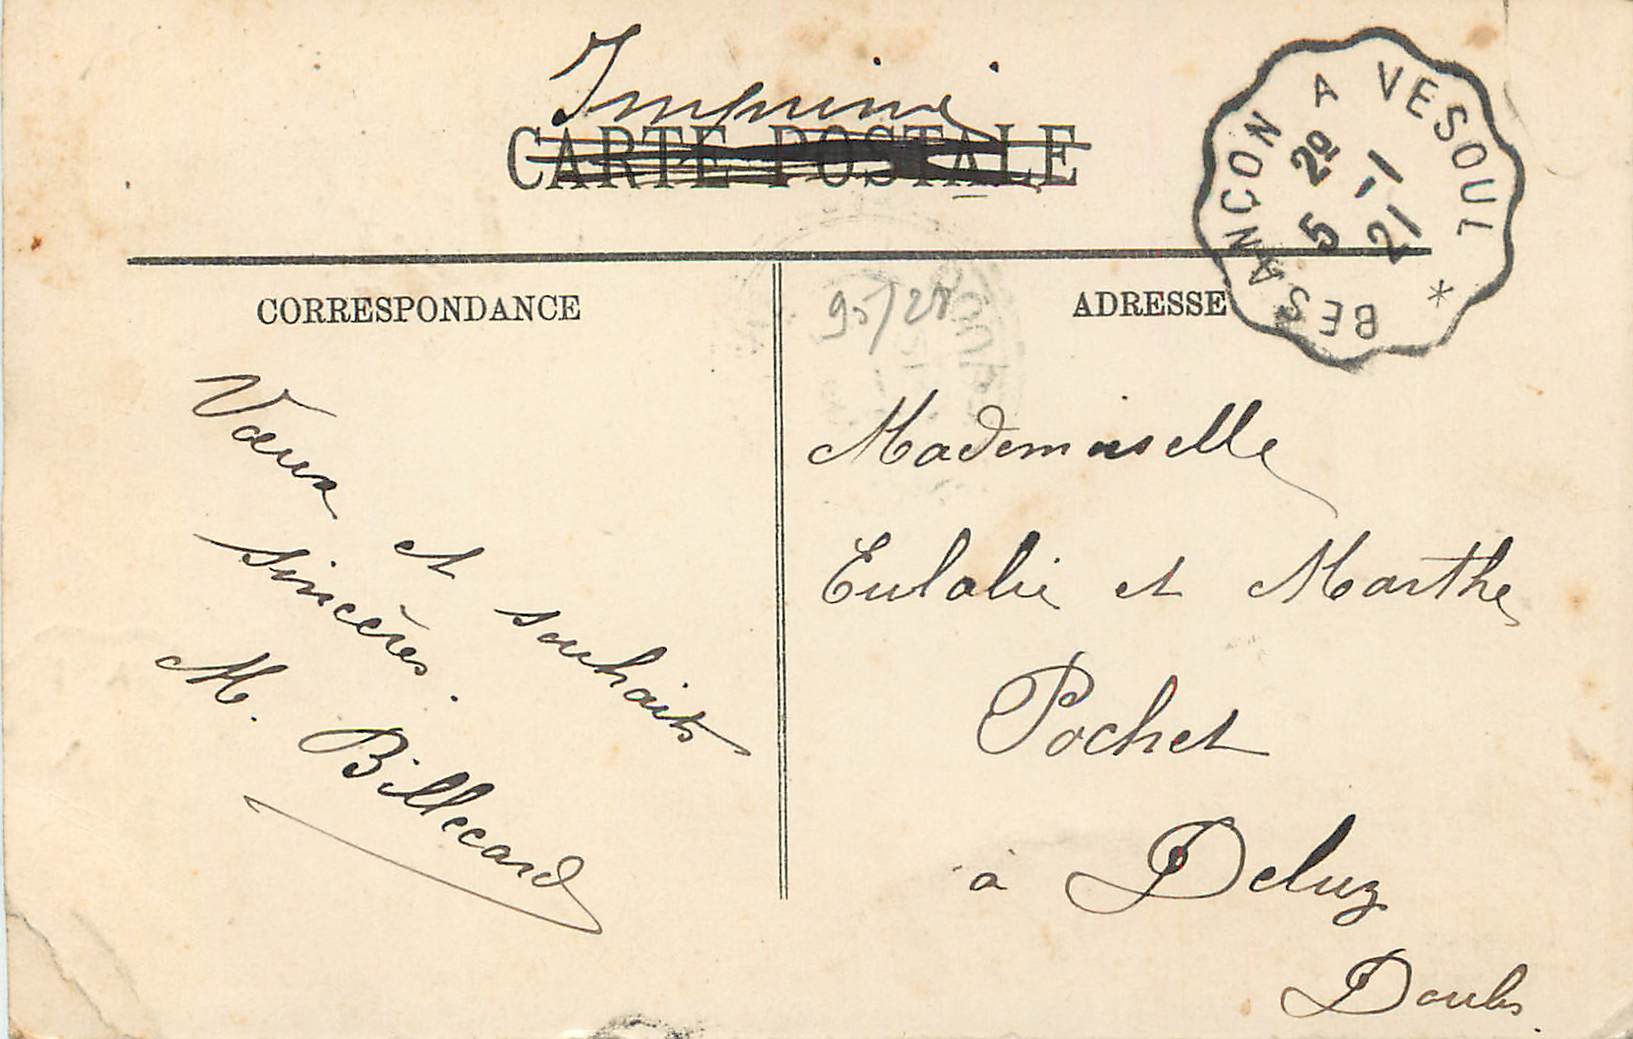 Imprimé
CARTE POSTALE
BESANCON A VESOUL *
2º
5 -1
21
CORRESPONDANCE
ADRESSE
95/28
Vœux et souhaits
sincères.
M. Billecard
Mademoiselle
Eulalie et Marthe
Pochet
à Deluz
Doubs.